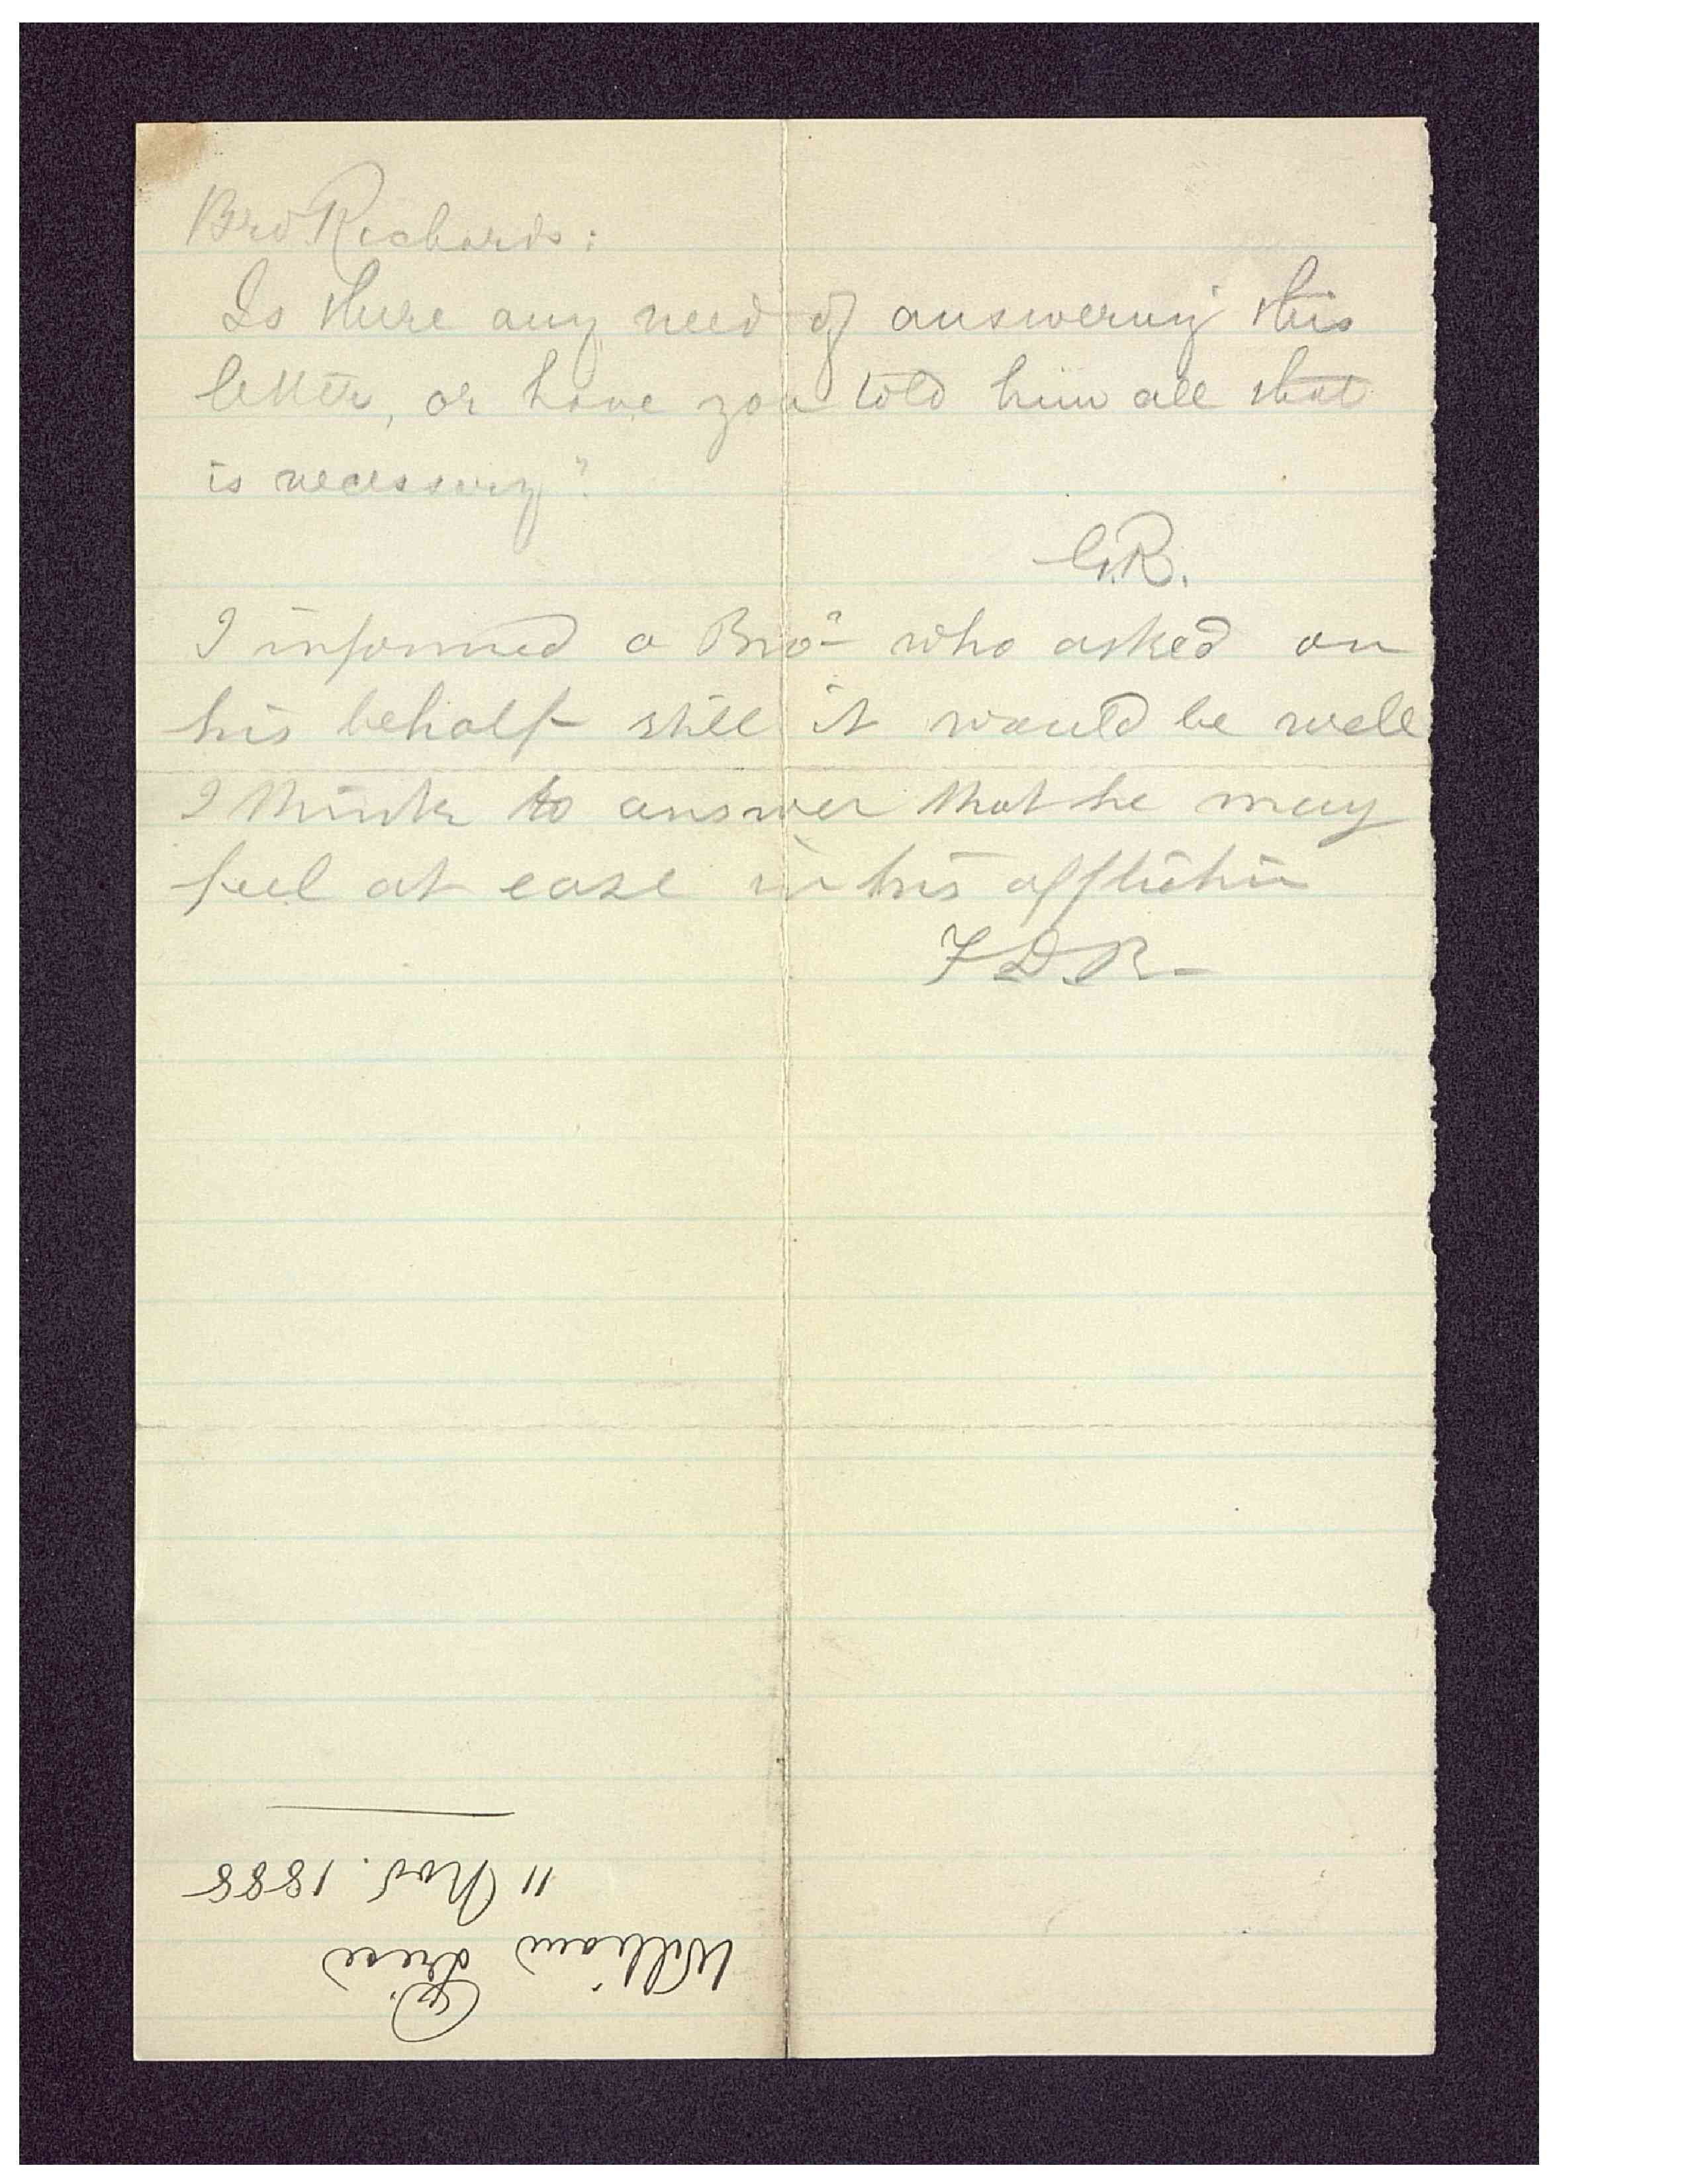 Bro Richards:
Is there any need of answering this
letter, or have you told him all that
is necessary?
G.R.
I informed a Bro- who asked on
his behalf still it would be well
I think to answer that he may
feel at ease in his affliction
F D R-
11 Nov. 1888
William